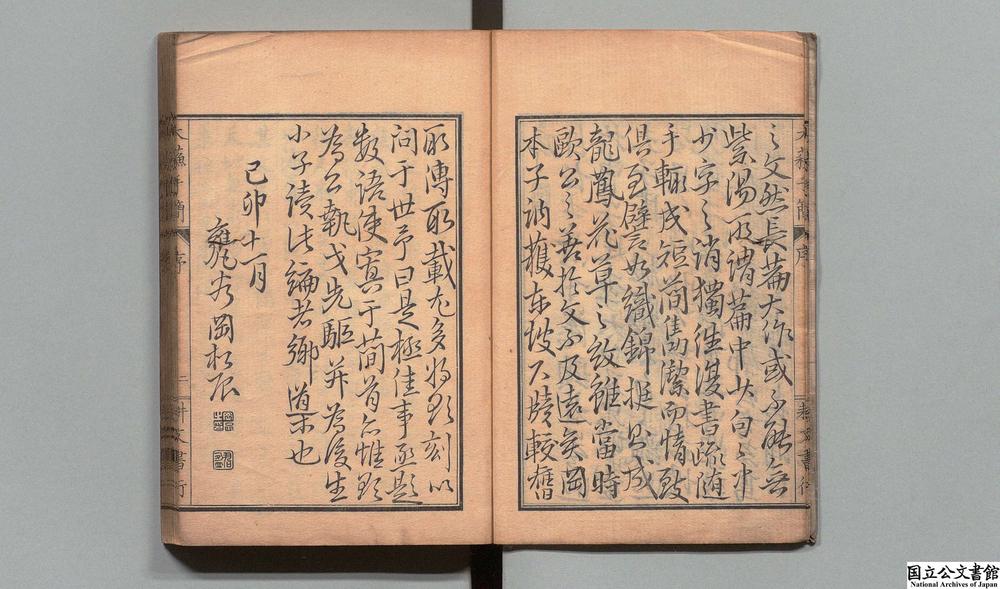 之文然長篇大作或不能無
紫陽所謂篇中少句句中
少字之誚獨往復書疏随
手輙成短簡雋潔而情致
倶至譬如織錦挺出成
龍鳳花草之紋雖當時
歐公之善於文不及遠矣岡
本子訥獲東坡尺牘較舊
所傳所載尤多將欲刻以
問于世予曰是極佳事亟題
数語使寘于簡首亦惟欲
為公執戈先駆并為後生
小子讀此編者郷導也
己卯十一月
甕谷岡松辰
序
二
国立公文書館
National Archives of Japan